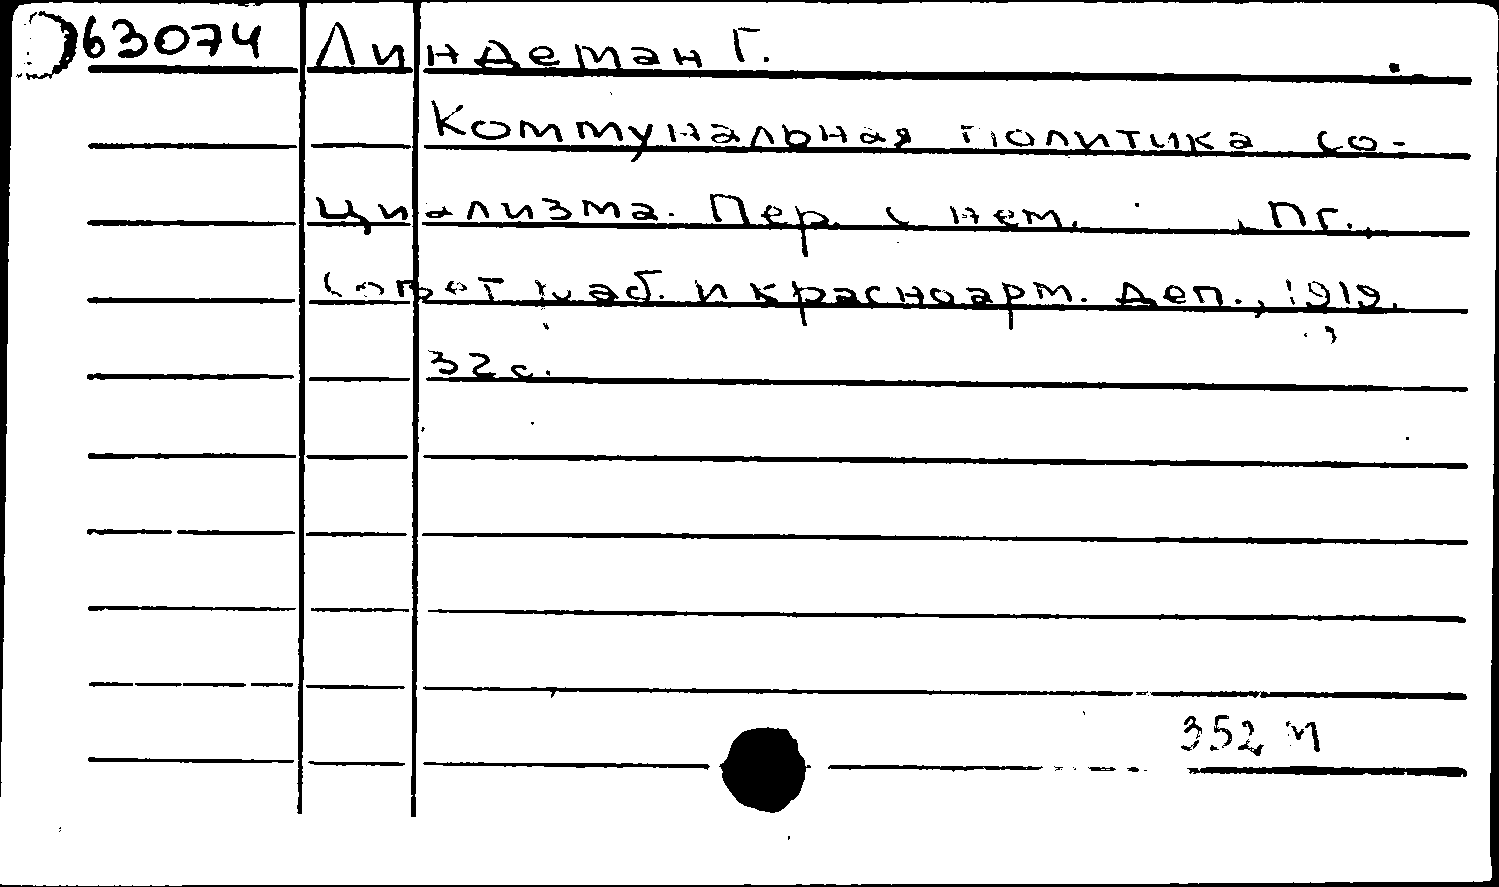 63074 Линдеман Г.
Коммунальная политика со-
циализма. Пер. с нем. , Пг.,
Совет раб. и красноарм. деп., 1919.
32 с.
352 м